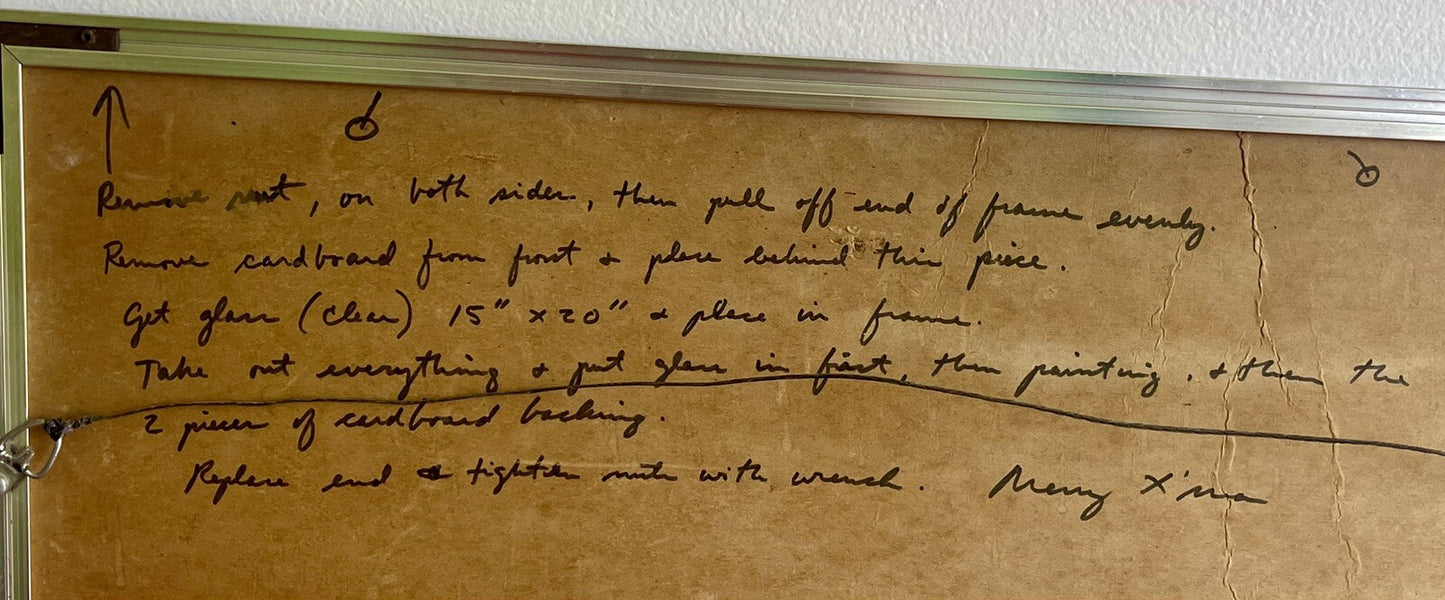 Remove nut, on both sides, then pull off end of frame evenly.
Remove cardboard from front & place behind this piece.
Get glass (clear) 15" x 20" & place in frame.
Take out everything & put glass in first, then painting, & then the
2 pieces of cardboard backing.
Replace end & tighten nuts with wrench. Merry X'mas